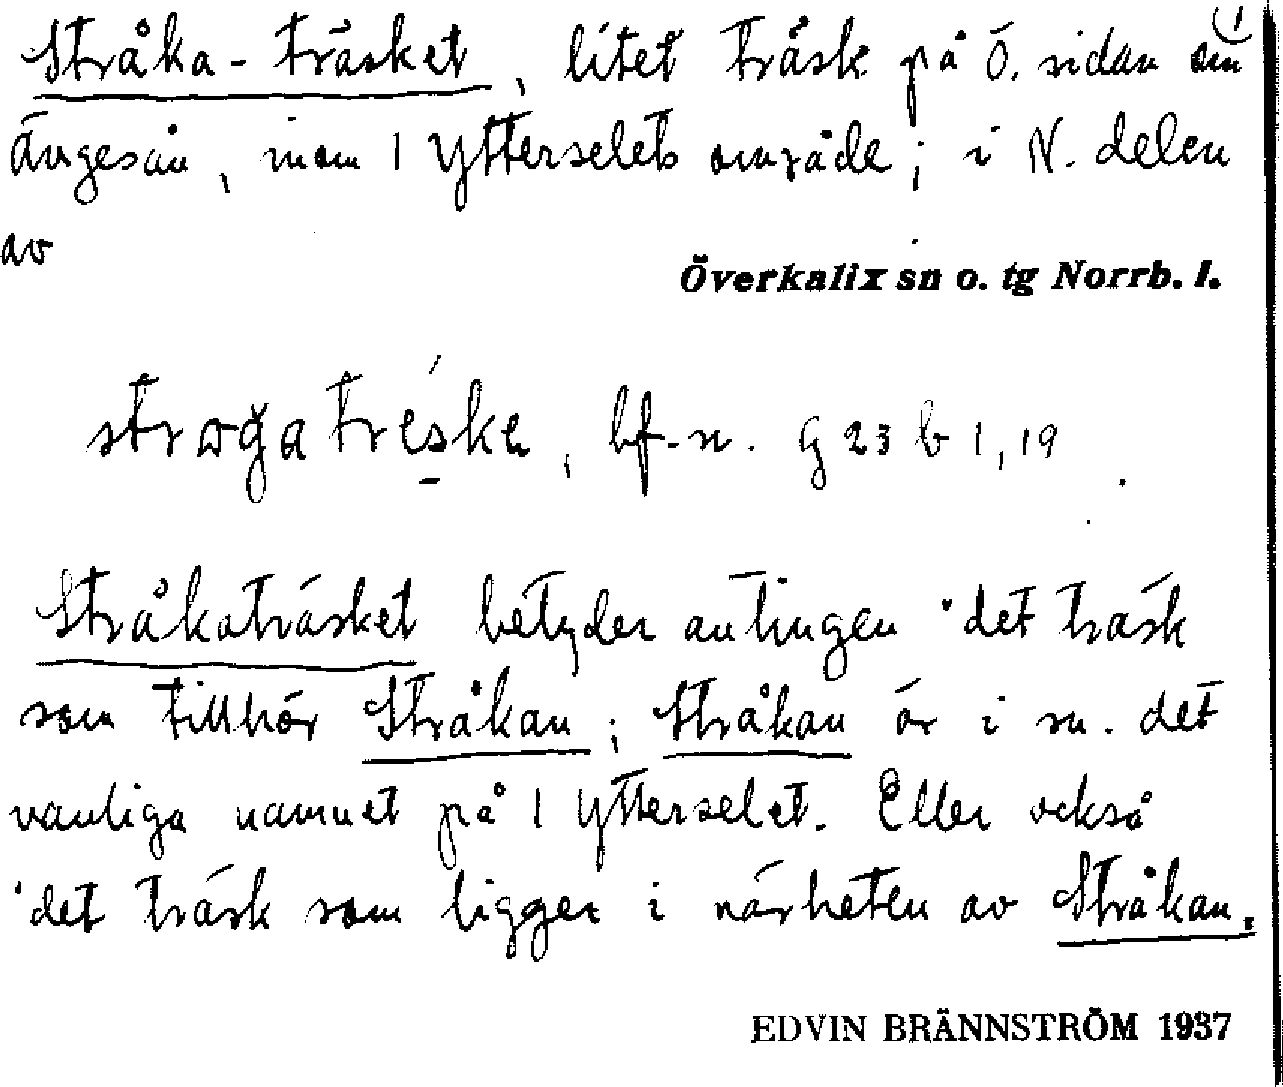 1
Stråka-träsket, litet träsk på Ö. sidan om
Ängesån, inom 1 Ytterselets område; i N. delen
av
Överkalix sn o. tg Norrb. l.
bf.-n. G 23 b 1, 19
Stråkaträsket betyder antingen 'det träsk
som tillhör Stråkan; Stråkan är i sn. det
vanliga namnet på 1 Ytterselet. Eller också
'det träsk som ligger i närheten av Stråkan.
EDVIN BRÄNNSTRÖM 1937